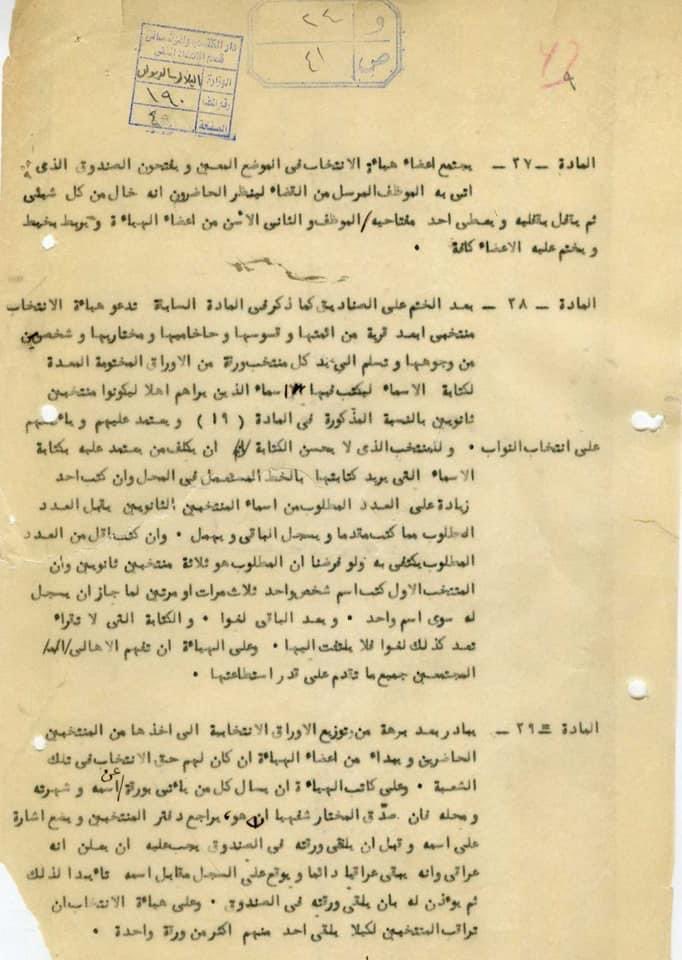 و ٢٤
ص ٤١
٤٢
٩
دار الكتب والوثائق
البلاط الملكي
١٩٠
الصفحة
المادة ــ ٢٧ ــ يجتمع اعضاء هيأة الانتخاب في الموضع المعين و يفتحون الصندوق الذى
اتى به الموظف المرسل من القضاء لينظر الحاضرون انه خال من كل شيئى
ثم يقفل بقفليه و يعطى احد مفتاحيه/الموظف و الثانى الاسن من اعضاء الهيأة و يربط بخيط
و يختم عليه الاعضاء كافة ٠
المادة ــ ٢٨ ــ بعد الختم على الصناديق كما ذكر في المادة السابقة تدعو هيأة الانتخاب
منتخبى ابعد قرية من ائمتها و قسوسها و حاخاميها و مختاريها و شخصين
من وجوهها و تسلم الى يد كل منتخب ورقة من الاوراق المختومة المعدة
لكتابة الاسماء ليكتب فيها اسماء الذين يراهم اهلا ليكونوا منتخبين
ثانويين بالنسبة المذكورة في المادة (١٩) و يعتمد عليهم و يأمنهم
على انتخاب النواب ٠ و للمنتخب الذى لا يحسن الكتابة ان يكلف من يعتمد عليه بكتابة
الاسماء التى يريد كتابتها بالخط المستعمل في المحل وان كتب احد
زيادة على العدد المطلوب من اسماء المنتخبين الثانويين يقبل العدد
المطلوب مما كتب مقدما و يسجل الباقى و يهمل ٠ وان كتب اقل من العدد
المطلوب يكتفى به ولو فرضنا ان المطلوب هو ثلاثة منتخبين ثانويين وان
المنتخب الاول كتب اسم شخص واحد ثلاث مرات او مرتين لما جاز ان يسجل
له سوى اسم واحد ٠ و يعد الباقى لغوا ٠ و الكتابة التى لا تقراء
تعد كذلك لغوا فلا يلتفت اليها ٠ وعلى الهيأة ان تفهم الاهالى
المجتمعين جميع ما تقدم على قدر استطاعتها ٠
المادة ــ ٢٩ ــ يبادر بعد برهة من توزيع الاوراق الانتخابية الى اخذها من المنتخبين
الحاضرين و يبداء من اعضاء الهيأة ان كان لهم حق الانتخاب في تلك
الشعبة ٠ وعلى كاتب الهيأة ان يسال كل من يأتى بورقة/عن اسمه و شهرته
و محله فان صدّق المختار شفهيا انه هو، يراجع دفتر المنتخبين و يضع اشارة
على اسمه و قبل ان يلقى ورقته في الصندوق يجب عليه ان يعلن انه
عراقى وانه يبقى عراقيا دائما و يوقع على السجل مقابل اسمه تأييدا لذلك
ثم يوءذن له بان يلقى ورقته في الصندوق ٠ وعلى هيأة الانتخاب ان
تراقب المنتخبين لكيلا يلقى احد منهم اكثر من ورقة واحدة ٠